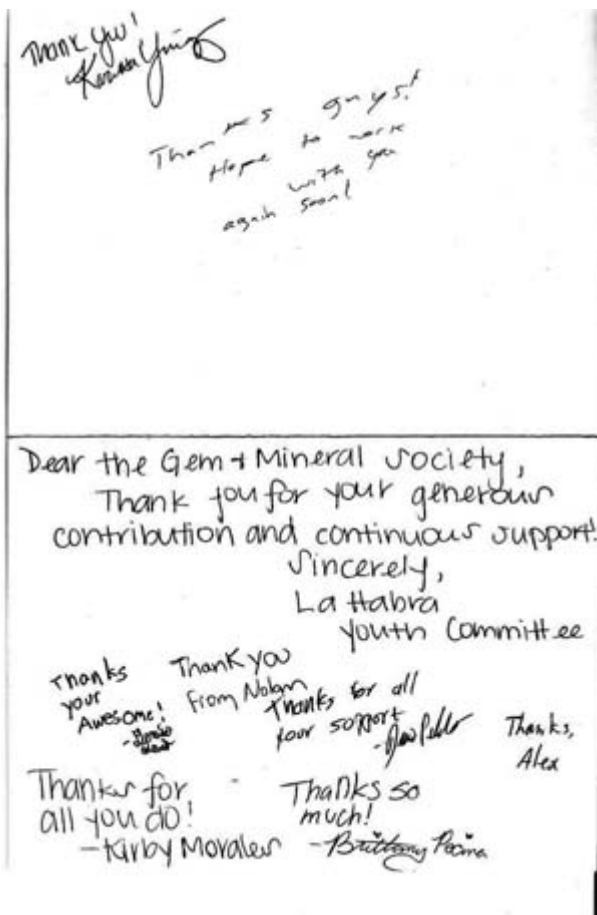 Thank you!
Thanks guys!
Hope to work
with you
again soon!
Dear the Gem & Mineral Society,
Thank you for your generous
contribution and continuous support!
Sincerely,
La Habra
Youth Committee
Thanks
your
Awesome!
Thank you
from Nolan
Thanks for all
your support
Thanks,
Alex
Thanks for
all you do!
-Kirby Morales
Thanks so
much!
-Brittany